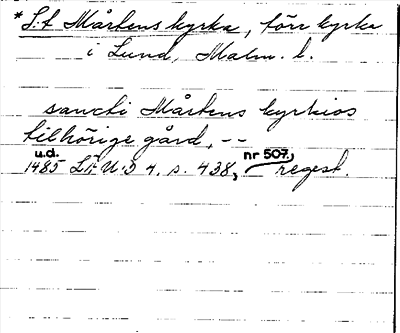 * S:t Mårtens kyrka, förr kyrka
i Lund, Malm. l.
sancti Mårtens kyrkios
tilhörige gård, --
u.d.
1485 LÄU 5 4, s. 438, nr 507, regest.